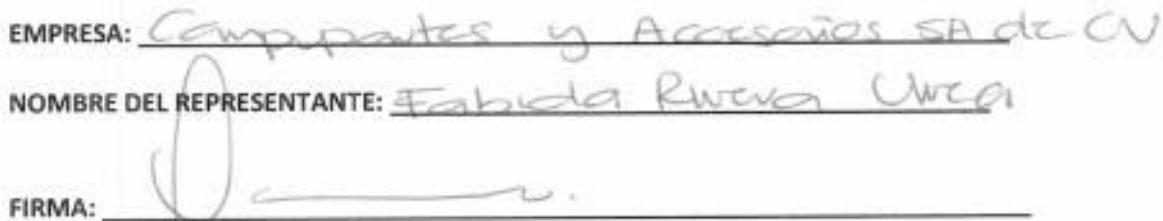 EMPRESA: Compupartes y Accesorios SA de CV
NOMBRE DEL REPRESENTANTE: Fabiola Rivera
FIRMA: